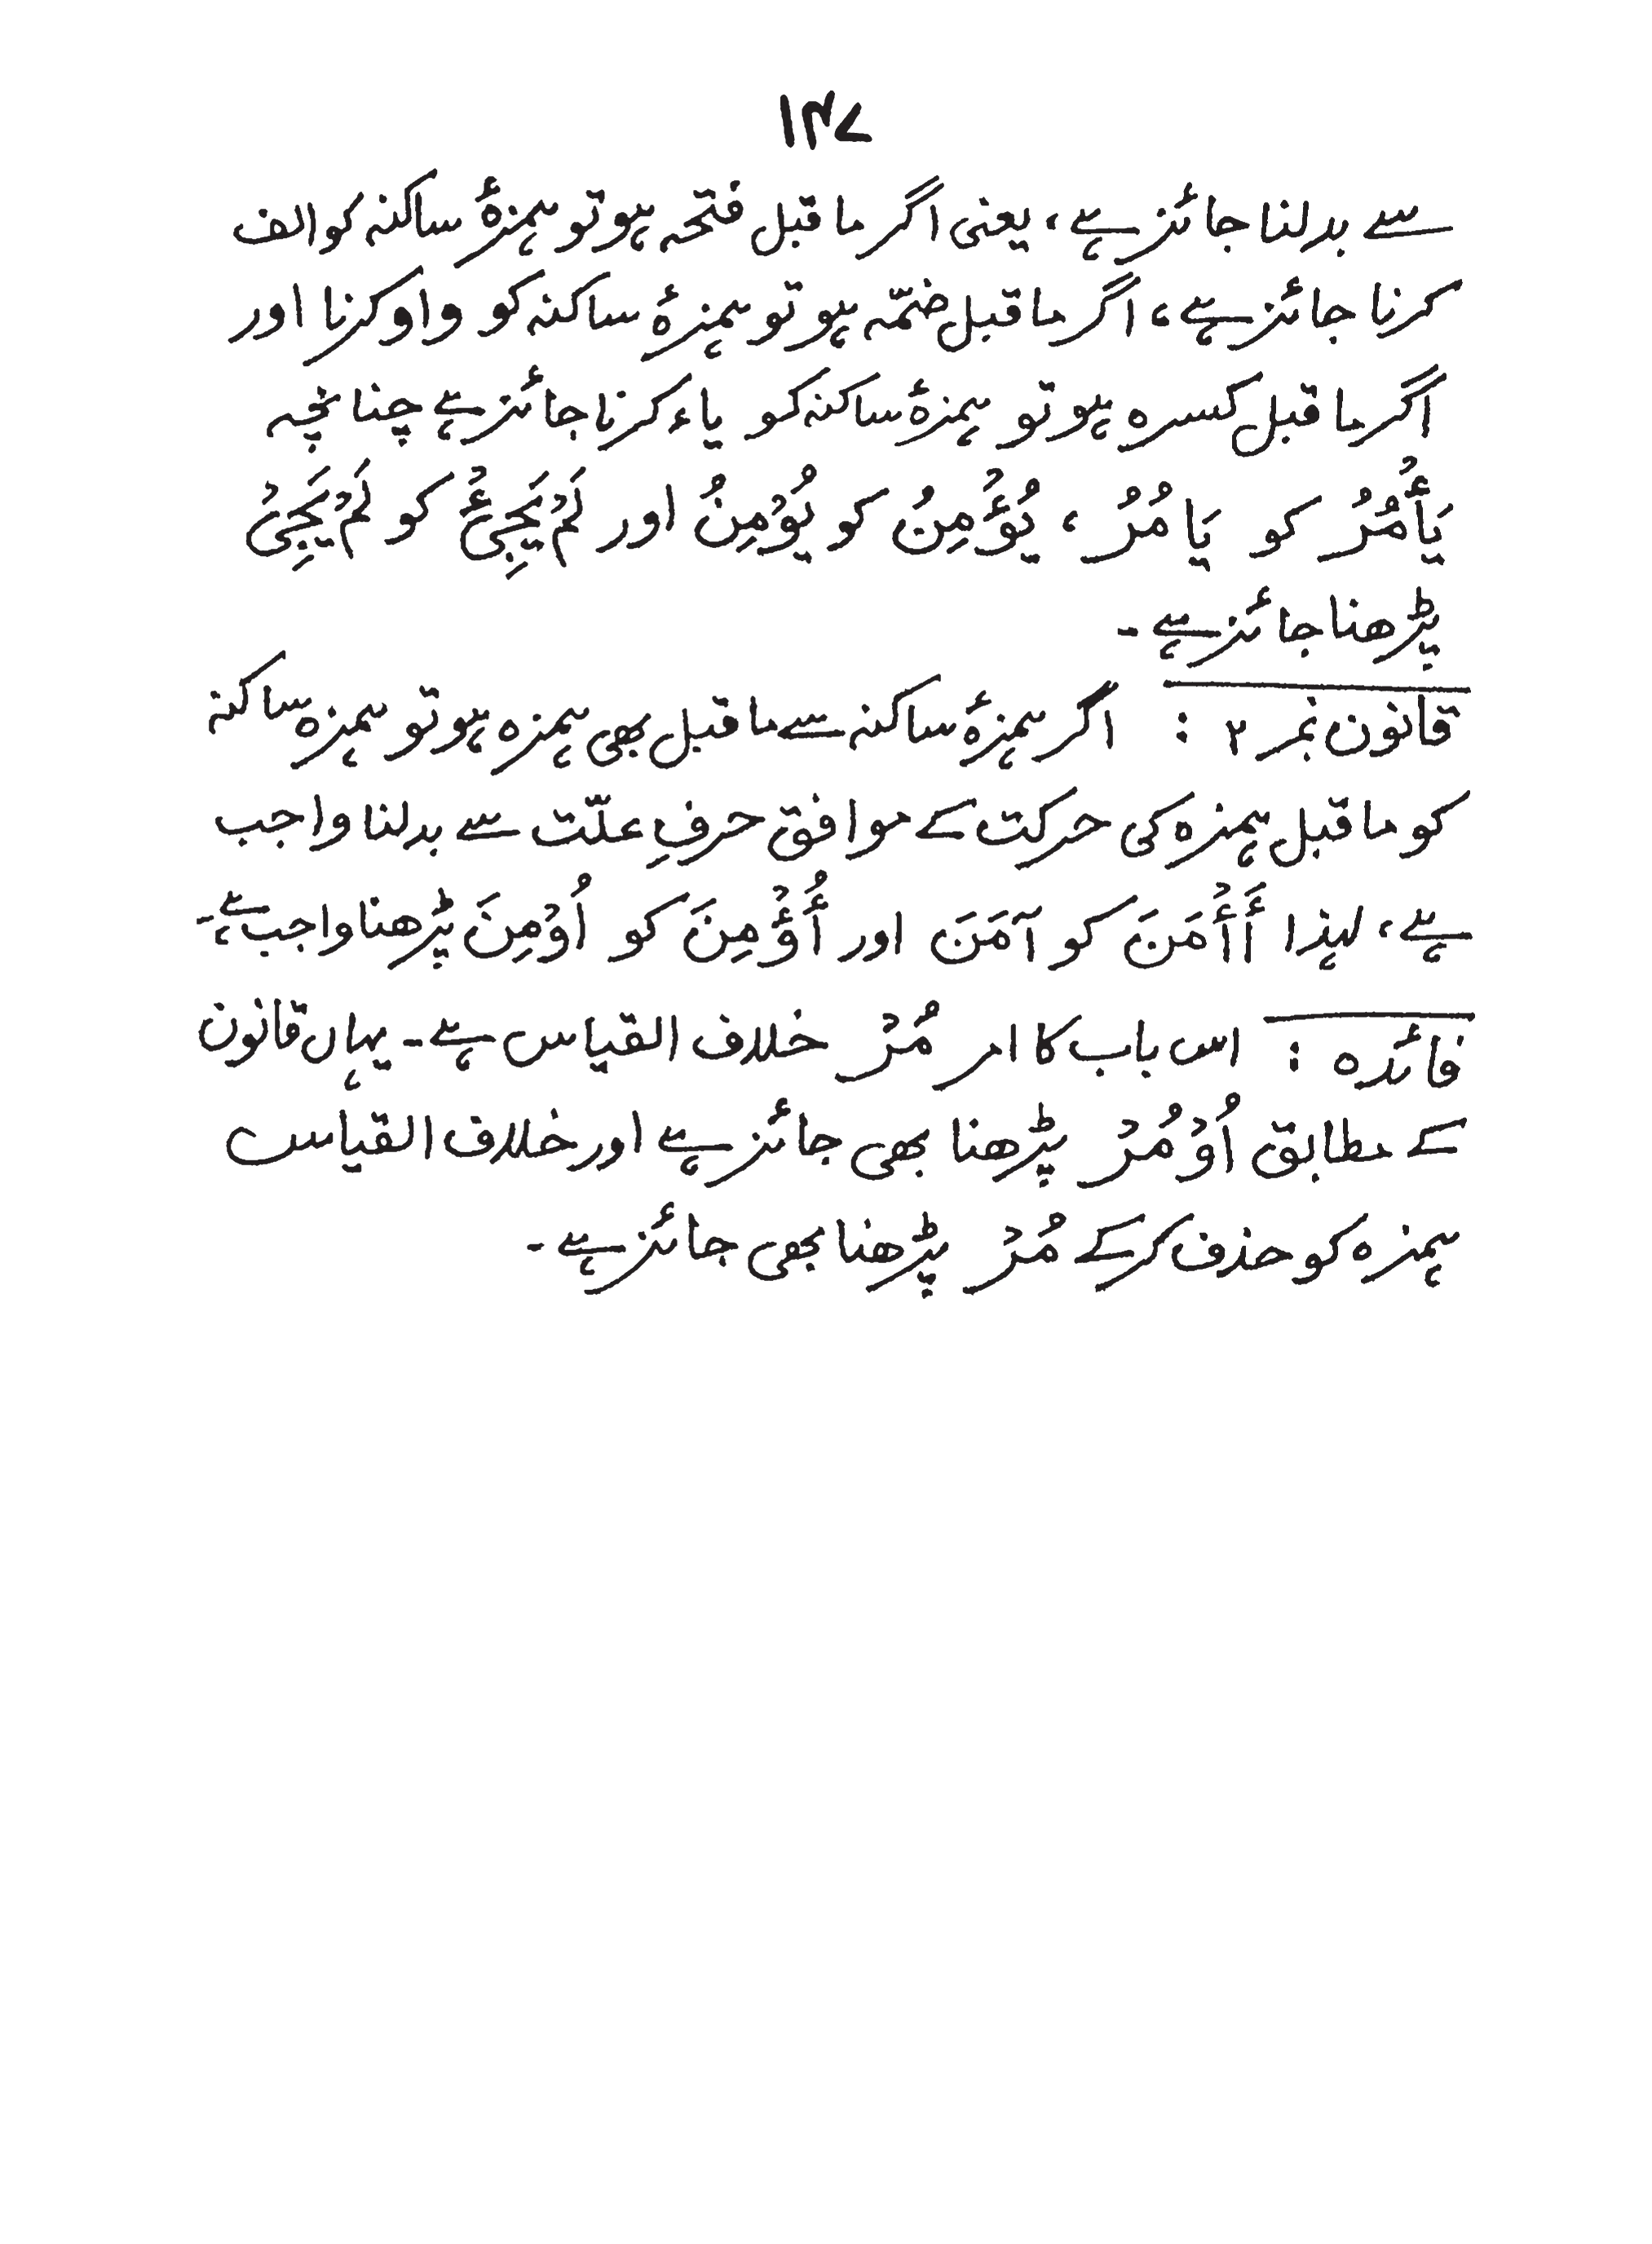 ۱۴۷
سے بدلنا جائز ہے، یعنی اگر ما قبل فتحہ ہو تو ہمزۂ ساکنہ کو الف
کرنا جائز ہے، اگر ما قبل ضمّہ ہو تو ہمزۂ ساکنہ کو واو کرنا اور
اگر ما قبل کسرہ ہو تو ہمزۂ ساکنہ کو یاء کرنا جائز ہے چنانچہ
يَأْمُرُ کو يَامُرُ ، يُؤْمِنُ کو يُوْمِنُ اور لَمْ يَجِئْ کو لَمْ يَجِيْ
پڑھنا جائز ہے ۔
قانون نمبر ۲ : اگر ہمزۂ ساکنہ سے ما قبل بھی ہمزہ ہو تو ہمزہ ساکنہ
کو ما قبل ہمزہ کی حرکت کے موافق حرفِ علّت سے بدلنا واجب
ہے، لہذا أَأْمَنَ کو آمَنَ اور أُؤْمِنَ کو اُوْمِنَ پڑھنا واجب ہے۔
فائدہ : اس باب کا امر مُرْ خلاف القیاس ہے ۔ یہاں قانون
کے مطابق اُوْمُرْ پڑھنا بھی جائز ہے اور خلاف القیاس
ہمزہ کو حذف کرکے مُرْ پڑھنا بھی جائز ہے ۔